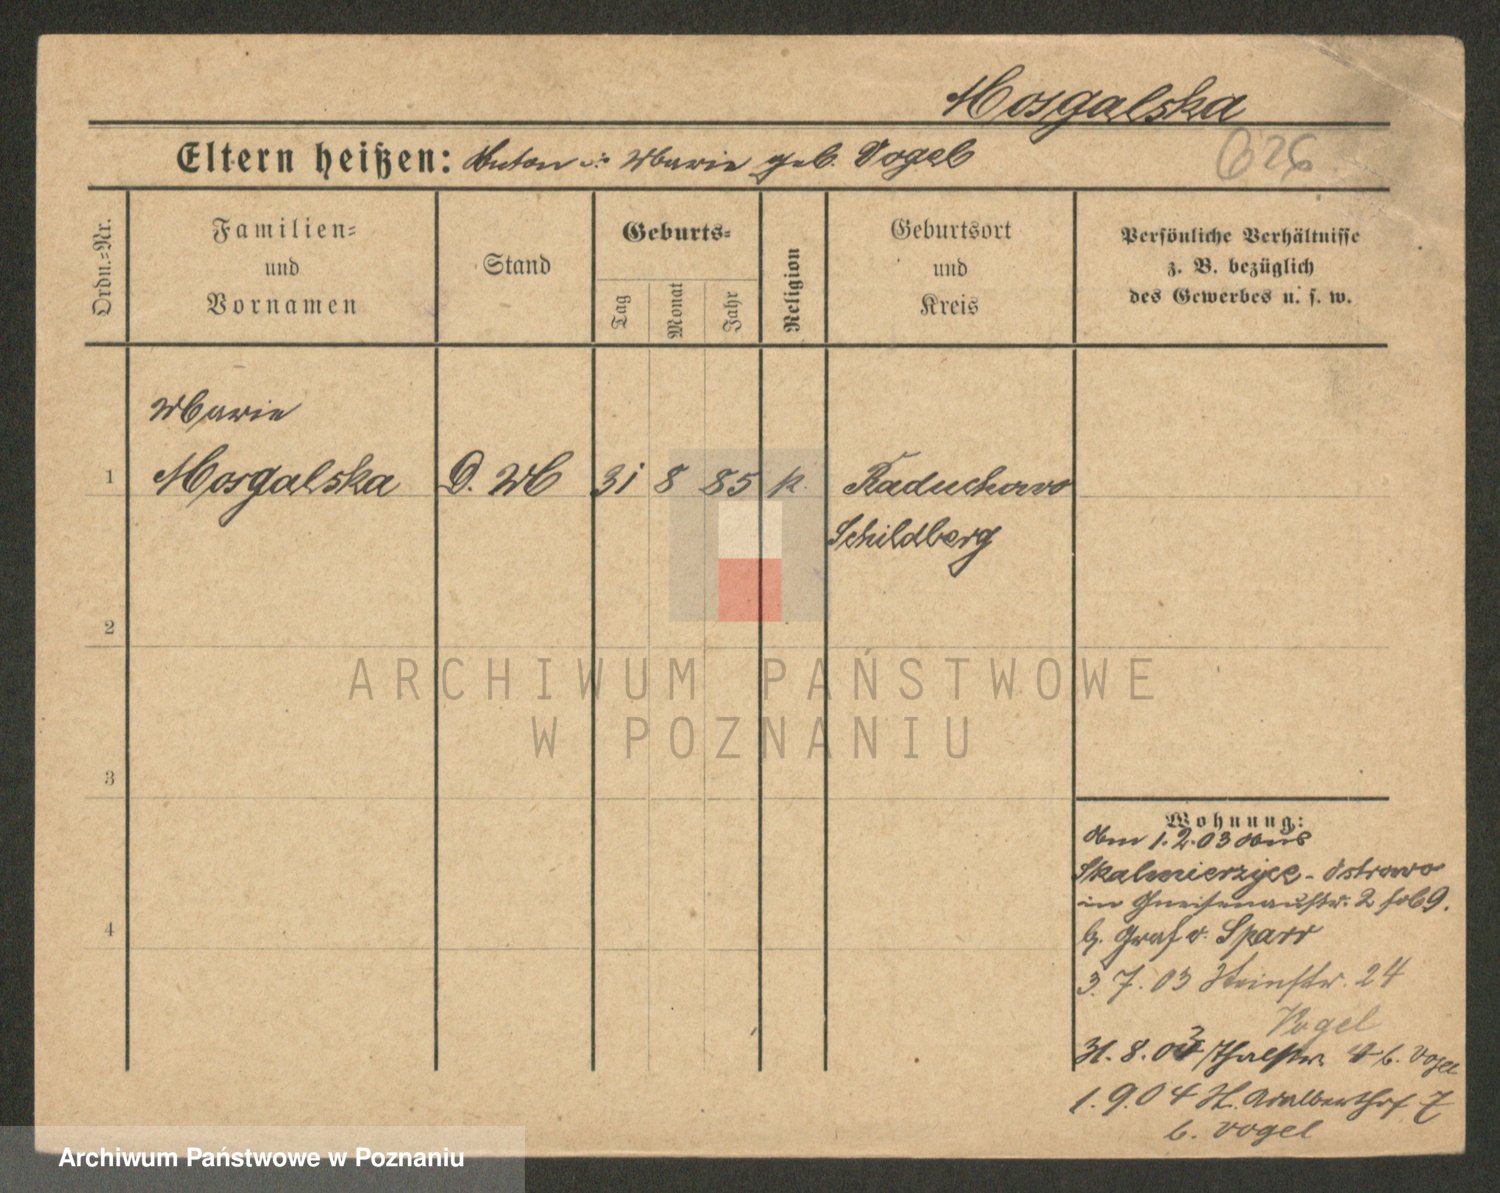 Mosgalska
Eltern heißen: Anton u. Marie geb. Vogel
626
Ordn.=Nr.
Familien=
und
Vornamen
Stand
Geburts=
Tag
Monat
Jahr
Religion
Geburtsort
und
Kreis
Persönliche Verhältnisse
z. B. bezüglich
des Gewerbes u. s. w.
Marie
1 Mosgalska D. M 31 8 85 k. Raduchowo
Schildberg
2
3
4
Wohnung:
Am 1.2.03 aus
Skalmierzyce - Ostrowo
in Gneisenaustr. 2
b. Graf v. Sparr
3.7.03 Steinstr. 24
Vogel
31.8.03 Thalstr. 4 b. Vogel
1.9.04 St. Adalberthof 7
b. Vogel
ARCHIWUM PAŃSTWOWE
W POZNANIU
Archiwum Państwowe w Poznaniu